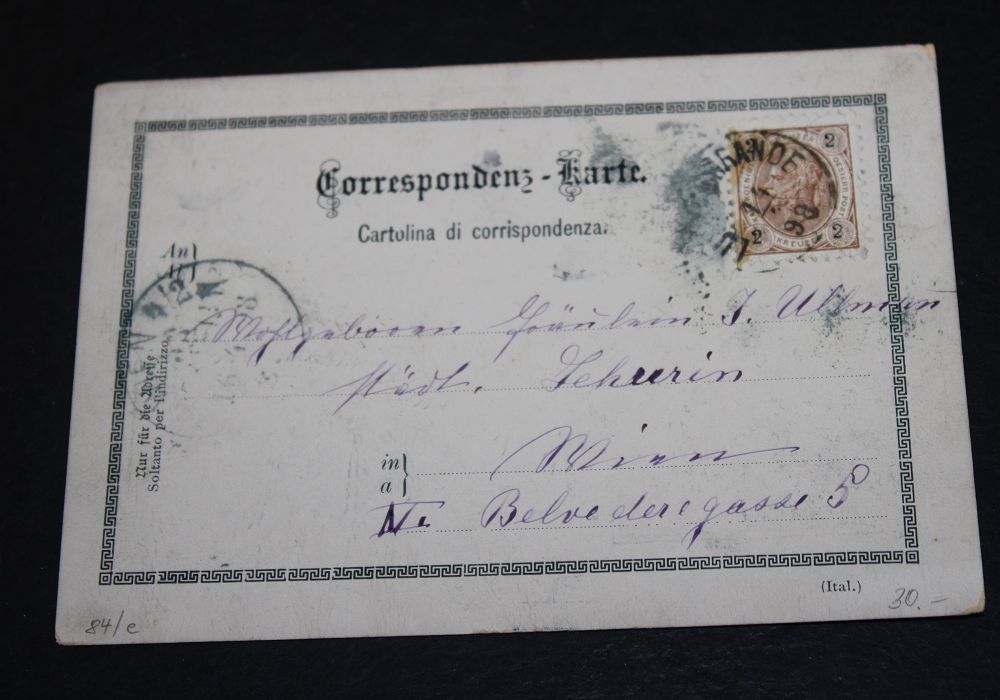 Correspondenz-Karte.
Cartolina di corrispondenza.
An
A
RANDE
98
2
2
2
KREUZER
Wohlgeboren Fräulein J. Ullman
städt. Lehrerin
in
a
Wien
IV. Belvederegasse 5
Nur für die Adresse
Soltanto per l'indirizzo
(Ital.)
84/e
30.-